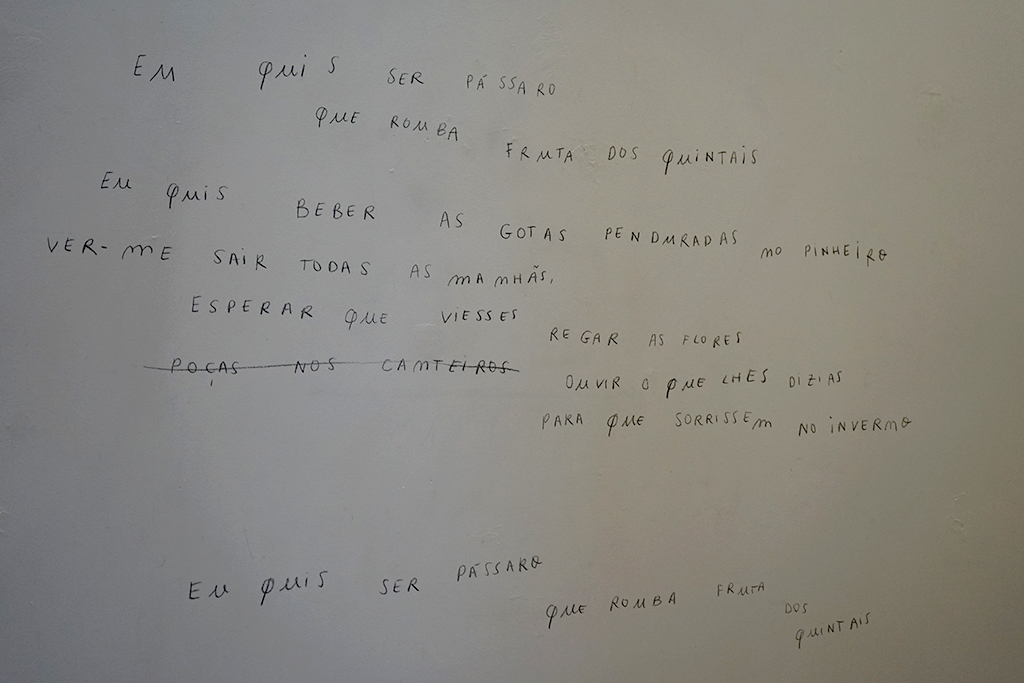 EU QUIS SER PÁSSARO
QUE ROUBA
FRUTA DOS QUINTAIS
EU QUIS BEBER AS GOTAS PENDURADAS NO PINHEIRO
VER-ME SAIR TODAS AS MANHÃS,
ESPERAR QUE VIESSES
REGAR AS FLORES
POÇAS NOS CANTEIROS
OUVIR O QUE LHES DIZIAS
PARA QUE SORRISSEM NO INVERNO
EU QUIS SER PÁSSARO
QUE ROUBA FRUTA
DOS
QUINTAIS